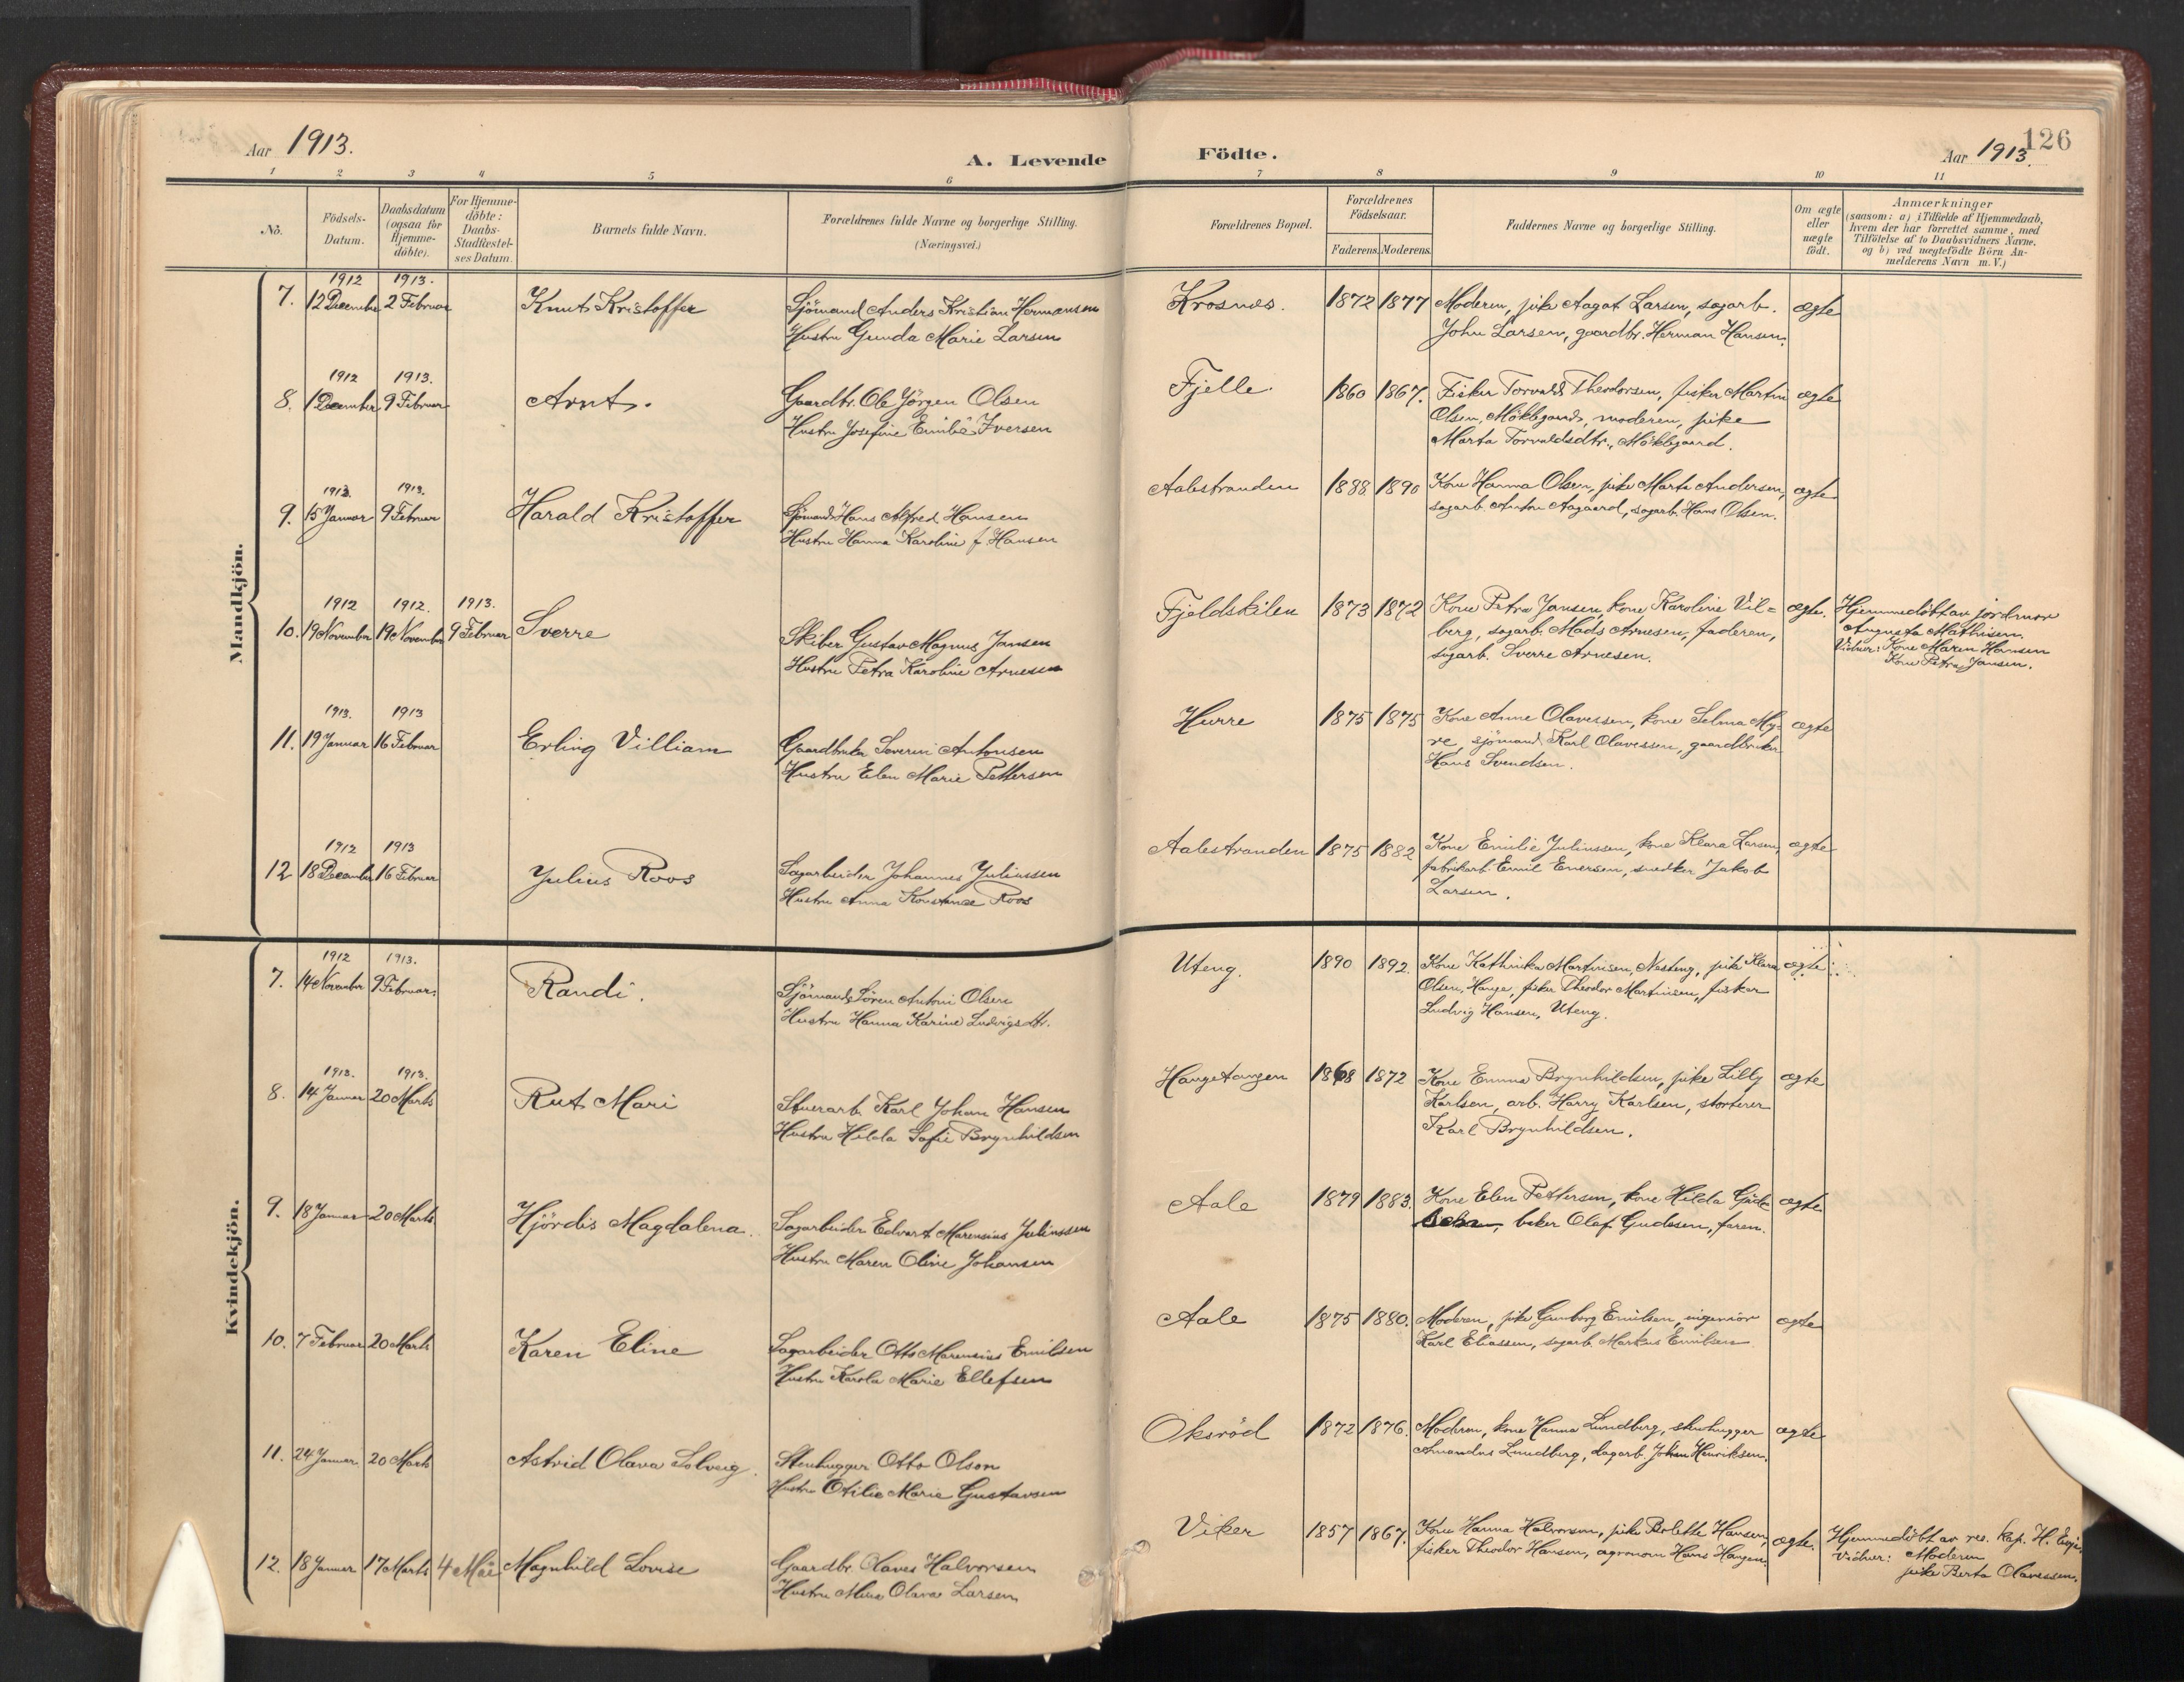 Aar 1913.
A. Levende Födte.
Aar 1913.
126
1 2 3 4 5 6 7 8 9 10 11
No.
Födsels-
Datum.
Daabsdatum
(ogsaa for
Hjemme-
döbte).
For Hjemme-
döbte:
Daabs-
Stadfæstel-
ses Datum.
Barnets fulde Navn.
Forældrenes fulde Navne og borgerlige Stilling.
(Næringsvei.)
Forældrenes Bopæl.
Forældrenes
Födselsaar.
Faderens. Moderens.
Faddernes Navne og borgerlige Stilling.
Om ægte
eller
uægte
födt.
Anmærkninger
(saasom: a) i Tilfælde af Hjemmedaab,
hvem der har forrettet samme, med
Tilföielse af to Daabsvidners Navne.
og b) ved uægtefödte Börn An-
melderens Navn m. V.)
Mandkjön.
1912 1913.
7. 12 December 2 Februar Knut Kristoffer Sjömand Anders Kristian Hermansen Krosnes. 1872 1877 Moderen, pike Aagot Larsen, sagarb. ægte
Hustru Gunda Marie Larsen John Larsen, gaardbr. Herman Hansen.
1912 1913.
8. 1 December 9 Februar Arnt. Gaardbr. Ole Jörgen Olsen Fjelle. 1860 1867. Fisker Torvald Theodorsen, fisker Martin ægte
Hustru Josefine Emilie Iversen Olsen, Möklegaard, moderen, pike
Marta Torvaldsdtr., Möklegaard.
1913. 1913.
9. 15 Januar 9 Februar Harald Kristoffer Sjömand Hans Alfred Hansen Aalestranden 1888 1890 Kone Hanna Olsen, pike Marta Andersen, ægte
Hustru Hanna Karoline f. Hansen sagarb. Anton Aagaard, sagarb. Hans Olsen.
1912 1912. 1913.
10. 19 November 19 November 9 Februar Sverre Skiber Gustav Magnus Jansen Fjeldskilen 1873 1872 Kone Petra Jansen, kone Karoline Vil= ægte. Hjemmedöbt av jordmor
Hustru Petra Karoline Arnesen berg, sagarb. Mads Arnesen, faderen, Augusta Mathisen.
sagarb. Sverre Arnesen. Vidner: Kone Maren Hansen
Kone Petra Jansen.
1913. 1913
11. 19 Januar 16 Februar Erling Villiam Gaardbruker Severin Antonsen Hurre 1875 1875 Kone Anne Olavessen, kone Selma My- ægte
Hustru Elen Marie Pettersen re, sjömand Karl Olavessen, gaardbruker
Hans Svendsen.
1912 1913
12 18 December 16 Februar Julius Roos Sagarbeider Johannes Juliussen Aalestranden 1875 1882 Kone Emilie Juliussen, kone Klara Larsen, ægte
Hustru Anna Konstanse Roos fabrikarb. Emil Enersen, snedker Jakob
Larsen.
Kvindekjön.
1912 1913.
7. 14 November 9 Februar. Randi. Sjömand Sören Antoni Olsen Uteng. 1890 1892. Kone Kathinka Martinsen, Nesteng, pike Klara ægte
Hustru Hanna Karine Ludvigsdtr. Olsen, Hauge, fisker Theodor Martinsen, fisker
Ludvig Hansen, Uteng.
1913. 1913.
8. 14 Januar 20 Marts Rut Mari Stuerarb. Karl Johan Hansen Haugetangen 1868 1872 Kone Emma Brynhildsen, pike Lilly ægte
Hustru Hilda Sofie Brynhildsen Karlsen, arb. Harry Karlsen, storterer
Karl Brynhildsen.
9. 18 Januar 20 Marts Hjördis Magdalena. Sagarbeider Edvart Marensius Juliussen Aale 1879 1883. Kone Elen Pettersen, kone Hilda Gude= ægte.
Hustru Maren Oline Johansen , beker Olaf Gudesen, faren.
10. 7 Februar 20 Marts Karen Eline Sagarbeider Otto Marensius Emilsen Aale 1875 1880. Moderen, pike Gunborg Emilsen, ingeniör ægte
Hustru Karola Marie Ellefsen Karl Eliassen, sagarb. Markus Emilsen
11. 24 Januar 20 Marts Astrid Olava Solveig. Stenhugger Otto Olson Oksröd 1872 1876. Moderen, kone Hanna Lundberg, stenhugger ægte
Hustru Otilie Marie Gustavsen Amandus Lundberg, dagarb. Johan Henriksen.
12. 18 Januar 17 Marts 4 Mai Magnhild Lovise Gaardbr. Olaves Halvorsen Viker 1857 1867. Kone Hanna Halvorsen, pike Bolette Hansen, ægte. Hjemmedöbt av res. kap. H.
Hustru Mina Olava Larsen fisker Theodor Hansen, agronom Hans Haugen. Vidner: Moderen
pike Berta Olavessen.